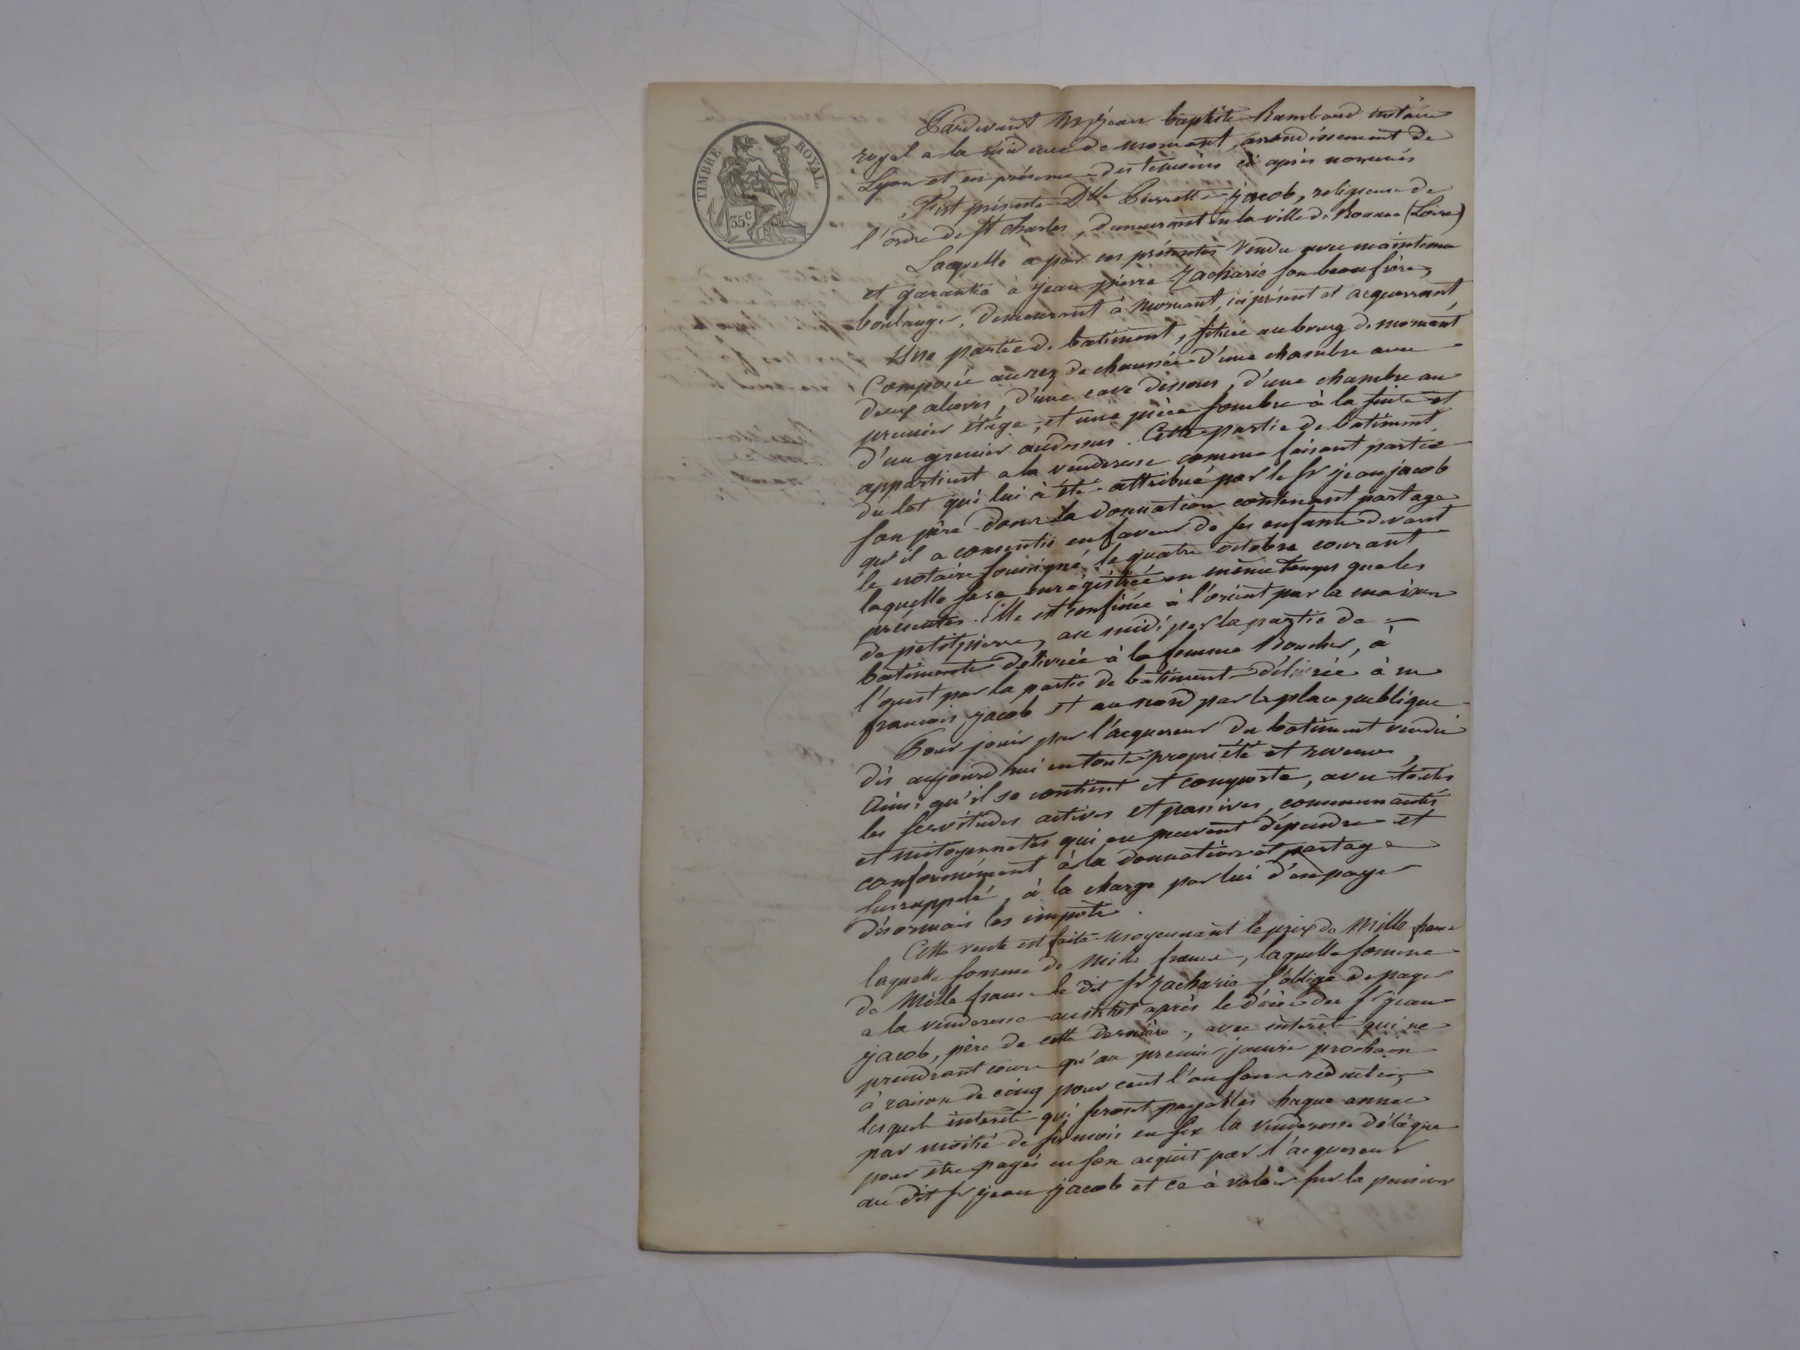 TIMBRE ROYAL.
35c.
Pardevant Me jean baptiste Rambaud notaire
royal a la residence de mornant, arrondissement de
Lyon et en présence des témoins ci après nommés
Est présente Dlle Pierrette jacob, religieuse de
l'ordre de St Charles, demeurant en la ville de Roanne (Loire)
Laquelle a par ces présentes vendu avec maintenue
et garantie à jean pierre Zacharie son beau frère,
boulanger, demeurant à Mornant, ici présent et acquerrant
Une partie de batiment, située au bourg de mornant
Composée au rez de chaussée d'une chambre avec
deux alcoves, d'une cave dessous, d'une chambre au
premier étage, et une pièce sombre à la suite et
d'un grenier audessus. Cette partie de batiment
appartient a la venderesse comme faisant partie
du lot qui lui a été attribué par le sr jean jacob
son père dans la donnation contenant partage
qu'il a consentie en faveur de ses enfants devant
le notaire soussigné, le quatre octobre courant
laquelle sera enregistrée en même temps que les
présentes. Elle est confinée à l'orient par la maison
de petitpierre, au midi par la partie de
batiments delivrée à la femme Boucher, à
l'ouest par la partie de batiment délivrée à
francois jacob et au nord par la place publique
Pour jouir par l'acquereur du batiment vendu
dès aujourd'hui en toute propriété et revenus,
Ainsi qu'il se contient et comporte, avec toutes
les servitudes actives et passives, communautés
et mitoyennetés qui en peuvent dépendre et
conformément à la donnation et partage
susrappelé, à la charge par lui d'en payer
désormais les impôts.
Cette vente est faite moyennant le prix de Mille francs
laquelle somme de Mille francs, laquelle somme
de Mille francs le dit sr Zacharie s'oblige de payer
a la venderesse aussitôt après le décès du sr jean
jacob, père de cette dernière, avec intérêt qui ne
prendront cours qu'au premier janvier prochain
à raison de cinq pour cent l'an sans réduction,
lesquels intérêts qui seront payables chaque année
par moitié de six mois en six la venderesse délègue
pour être payés en son acquit par l'acquereur
au dit sr jean jacob et ce à valoir sur la pension